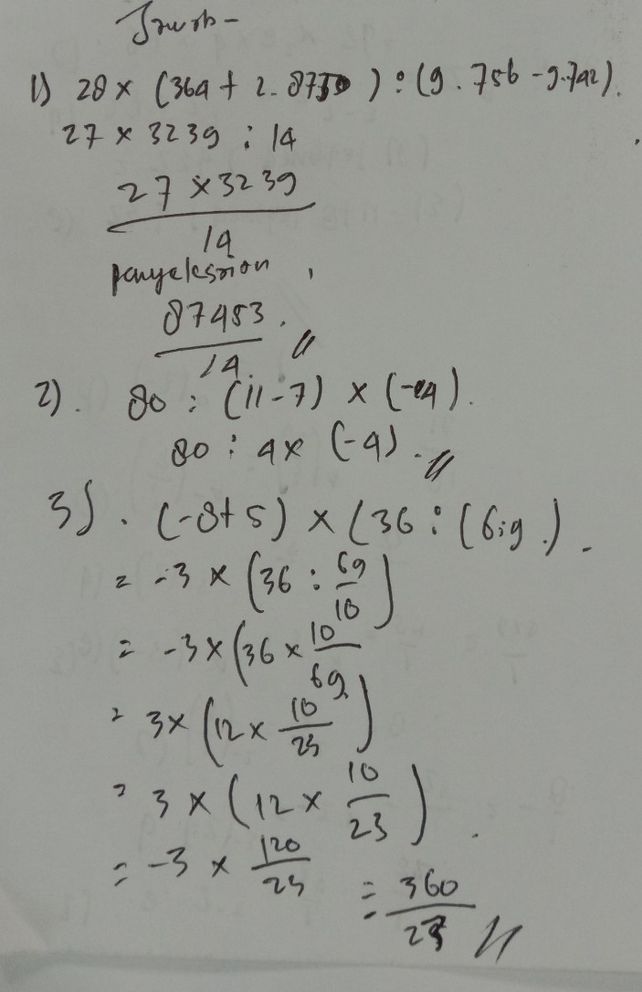 Jawab -
1) 28 × (364 + 2.875 ) : (9.756 - 9.742).
27 × 3239 : 14
27 × 3239
14
penyelesaian ,
87453.
14.
2). 80 : (11-7) × (-4).
80 : 4 × (-4).
3). (-8+5) × (36 : (6,9.).
= -3 × (36 : 69/10)
= -3 × (36 × 10/69)
= 3 × (12 × 10/23)
= 3 × (12 × 10/23).
= -3 × 120/23 = 360/23